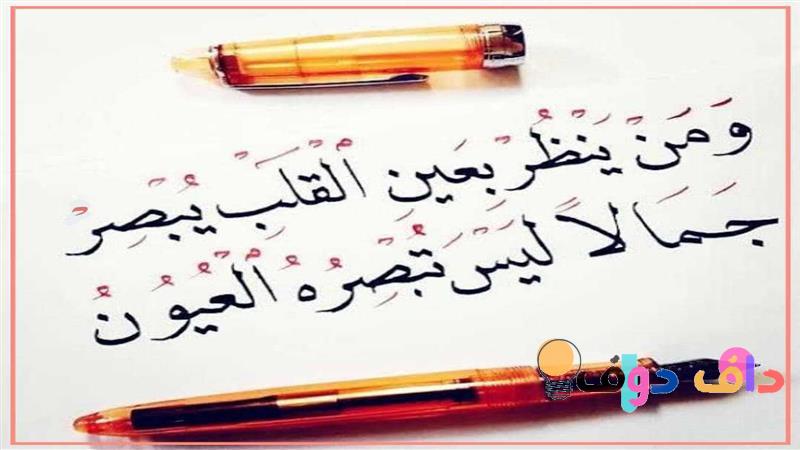 وَمَنْ يَنْظُرْ بِعَينِ الْقَلَبِ يُبْصِرْ
جَمَالاً لَيَسْ تُبْصِرُهُ الْعُيُونُ
داف دوف